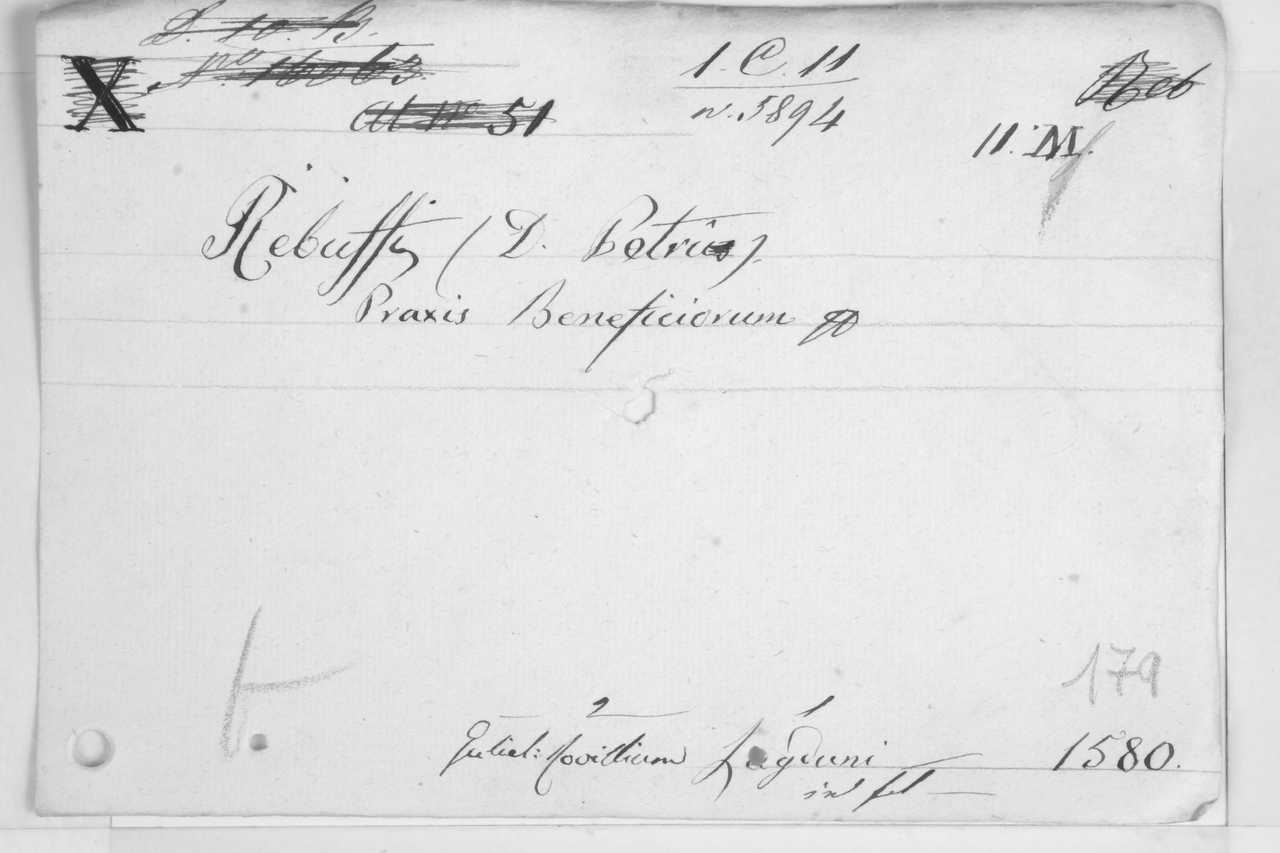 X
D. 10. B.
1. C. 11
n. 5894
Reb
at N° 51
11. M.
Rebuffi (D. Petrus).
Praxis Beneficiorum
179
2 1
Guliel: Rovillium Lugduni 1580.
in fol